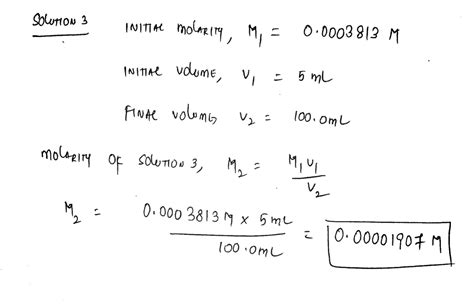 Solution 3 Initial molarity, M₁ = 0.0003813 M
Initial volume, V₁ = 5 mL
Final volume, V₂ = 100.0mL
Molarity of solution 3, M₂ = M₁V₁ / V₂
M₂ = 0.0003813 M x 5 mL / 100.0mL = 0.00001907 M